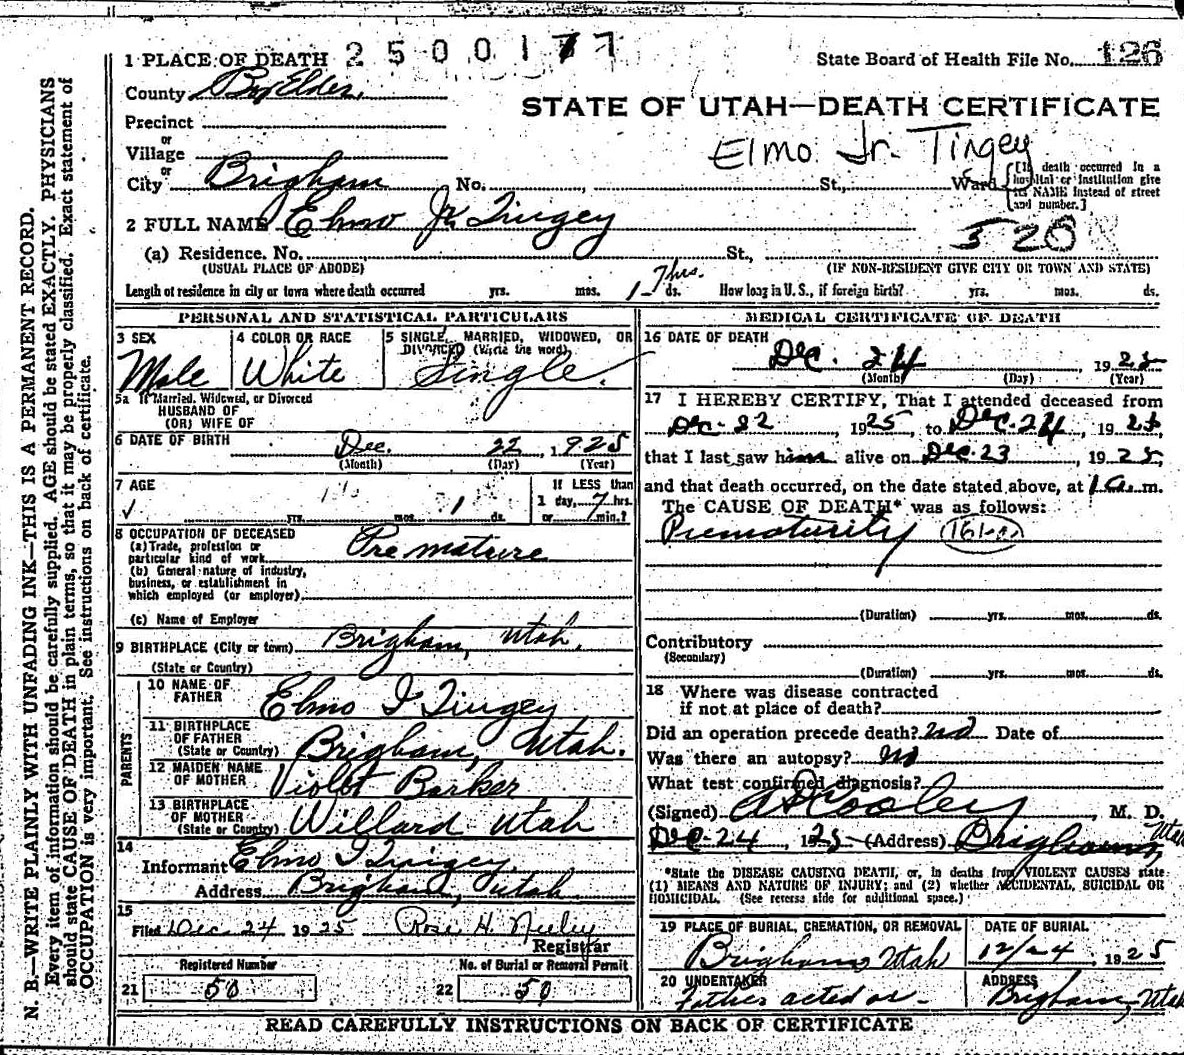 1 PLACE OF DEATH 2500177 State Board of Health File No. 126
County Box Elder
STATE OF UTAH—DEATH CERTIFICATE
Precinct
or
Elmo Jr. Tingey
Village
or
City Brigham No. , St., Ward
[If death occurred in a
hospital or institution give
its NAME instead of street
and number.]
2 FULL NAME Elmo Jr Tingey
520
(a) Residence. No. St.,
(USUAL PLACE OF ABODE) (IF NON-RESIDENT GIVE CITY OR TOWN AND STATE)
Length of residence in city or town where death occurred yrs. mos. 1 - 7 hrs. ds. How long in U. S., if foreign birth? yrs. mos. ds.
PERSONAL AND STATISTICAL PARTICULARS
3 SEX
Male
4 COLOR OR RACE
White
5 SINGLE, MARRIED, WIDOWED, OR
DIVORCED (Write the word)
Single.
5a If Married, Widowed, or Divorced
HUSBAND OF
(OR) WIFE OF
6 DATE OF BIRTH Dec. 22, 1925
(Month) (Day) (Year)
7 AGE
yrs. mos. 1 ds.
If LESS than
1 day, 7 hrs.
or min.?
8 OCCUPATION OF DECEASED
(a) Trade, profession or
particular kind of work Premature
(b) General nature of industry,
business, or establishment in
which employed (or employer)
(c) Name of Employer
9 BIRTHPLACE (City or town) Brigham, Utah.
(State or Country)
PARENTS
10 NAME OF
FATHER Elmo I Tingey
11 BIRTHPLACE
OF FATHER
(State or Country) Brigham, Utah.
12 MAIDEN NAME
OF MOTHER Violet Barker
13 BIRTHPLACE
OF MOTHER
(State or Country) Willard Utah
14
Informant Elmo I Tingey
Address Brigham, Utah
15
Filed Dec 24 1925 Rose H. Neeley
Registrar
Registered Number
21 50
No. of Burial or Removal Permit
22 50
MEDICAL CERTIFICATE OF DEATH
16 DATE OF DEATH
Dec. 24 1925
(Month) (Day) (Year)
17 I HEREBY CERTIFY, That I attended deceased from
Dec. 22, 1925, to Dec. 24, 1925,
that I last saw him alive on Dec. 23, 1925,
and that death occurred, on the date stated above, at 1 a. m.
The CAUSE OF DEATH* was as follows:
Prematurity 161-a
(Duration) yrs. mos. ds.
Contributory
(Secondary)
(Duration) yrs. mos. ds.
18 Where was disease contracted
if not at place of death?
Did an operation precede death? no Date of
Was there an autopsy? no
What test confirmed diagnosis?
(Signed) A D Cooley, M. D.
Dec. 24, 1925 (Address) Brigham, Utah
*State the DISEASE CAUSING DEATH, or, in deaths from VIOLENT CAUSES state
(1) MEANS AND NATURE OF INJURY; and (2) whether ACCIDENTAL, SUICIDAL OR
HOMICIDAL. (See reverse side for additional space.)
19 PLACE OF BURIAL, CREMATION, OR REMOVAL
Brigham, Utah
DATE OF BURIAL
12/24, 1925
20 UNDERTAKER
Father acted as -
ADDRESS
Brigham, Utah
READ CAREFULLY INSTRUCTIONS ON BACK OF CERTIFICATE
N. B.—WRITE PLAINLY WITH UNFADING INK—THIS IS A PERMANENT RECORD.
Every item of information should be carefully supplied. AGE should be stated EXACTLY. PHYSICIANS
should state CAUSE OF DEATH in plain terms, so that it may be properly classified. Exact statement of
OCCUPATION is very important. See instructions on back of certificate.